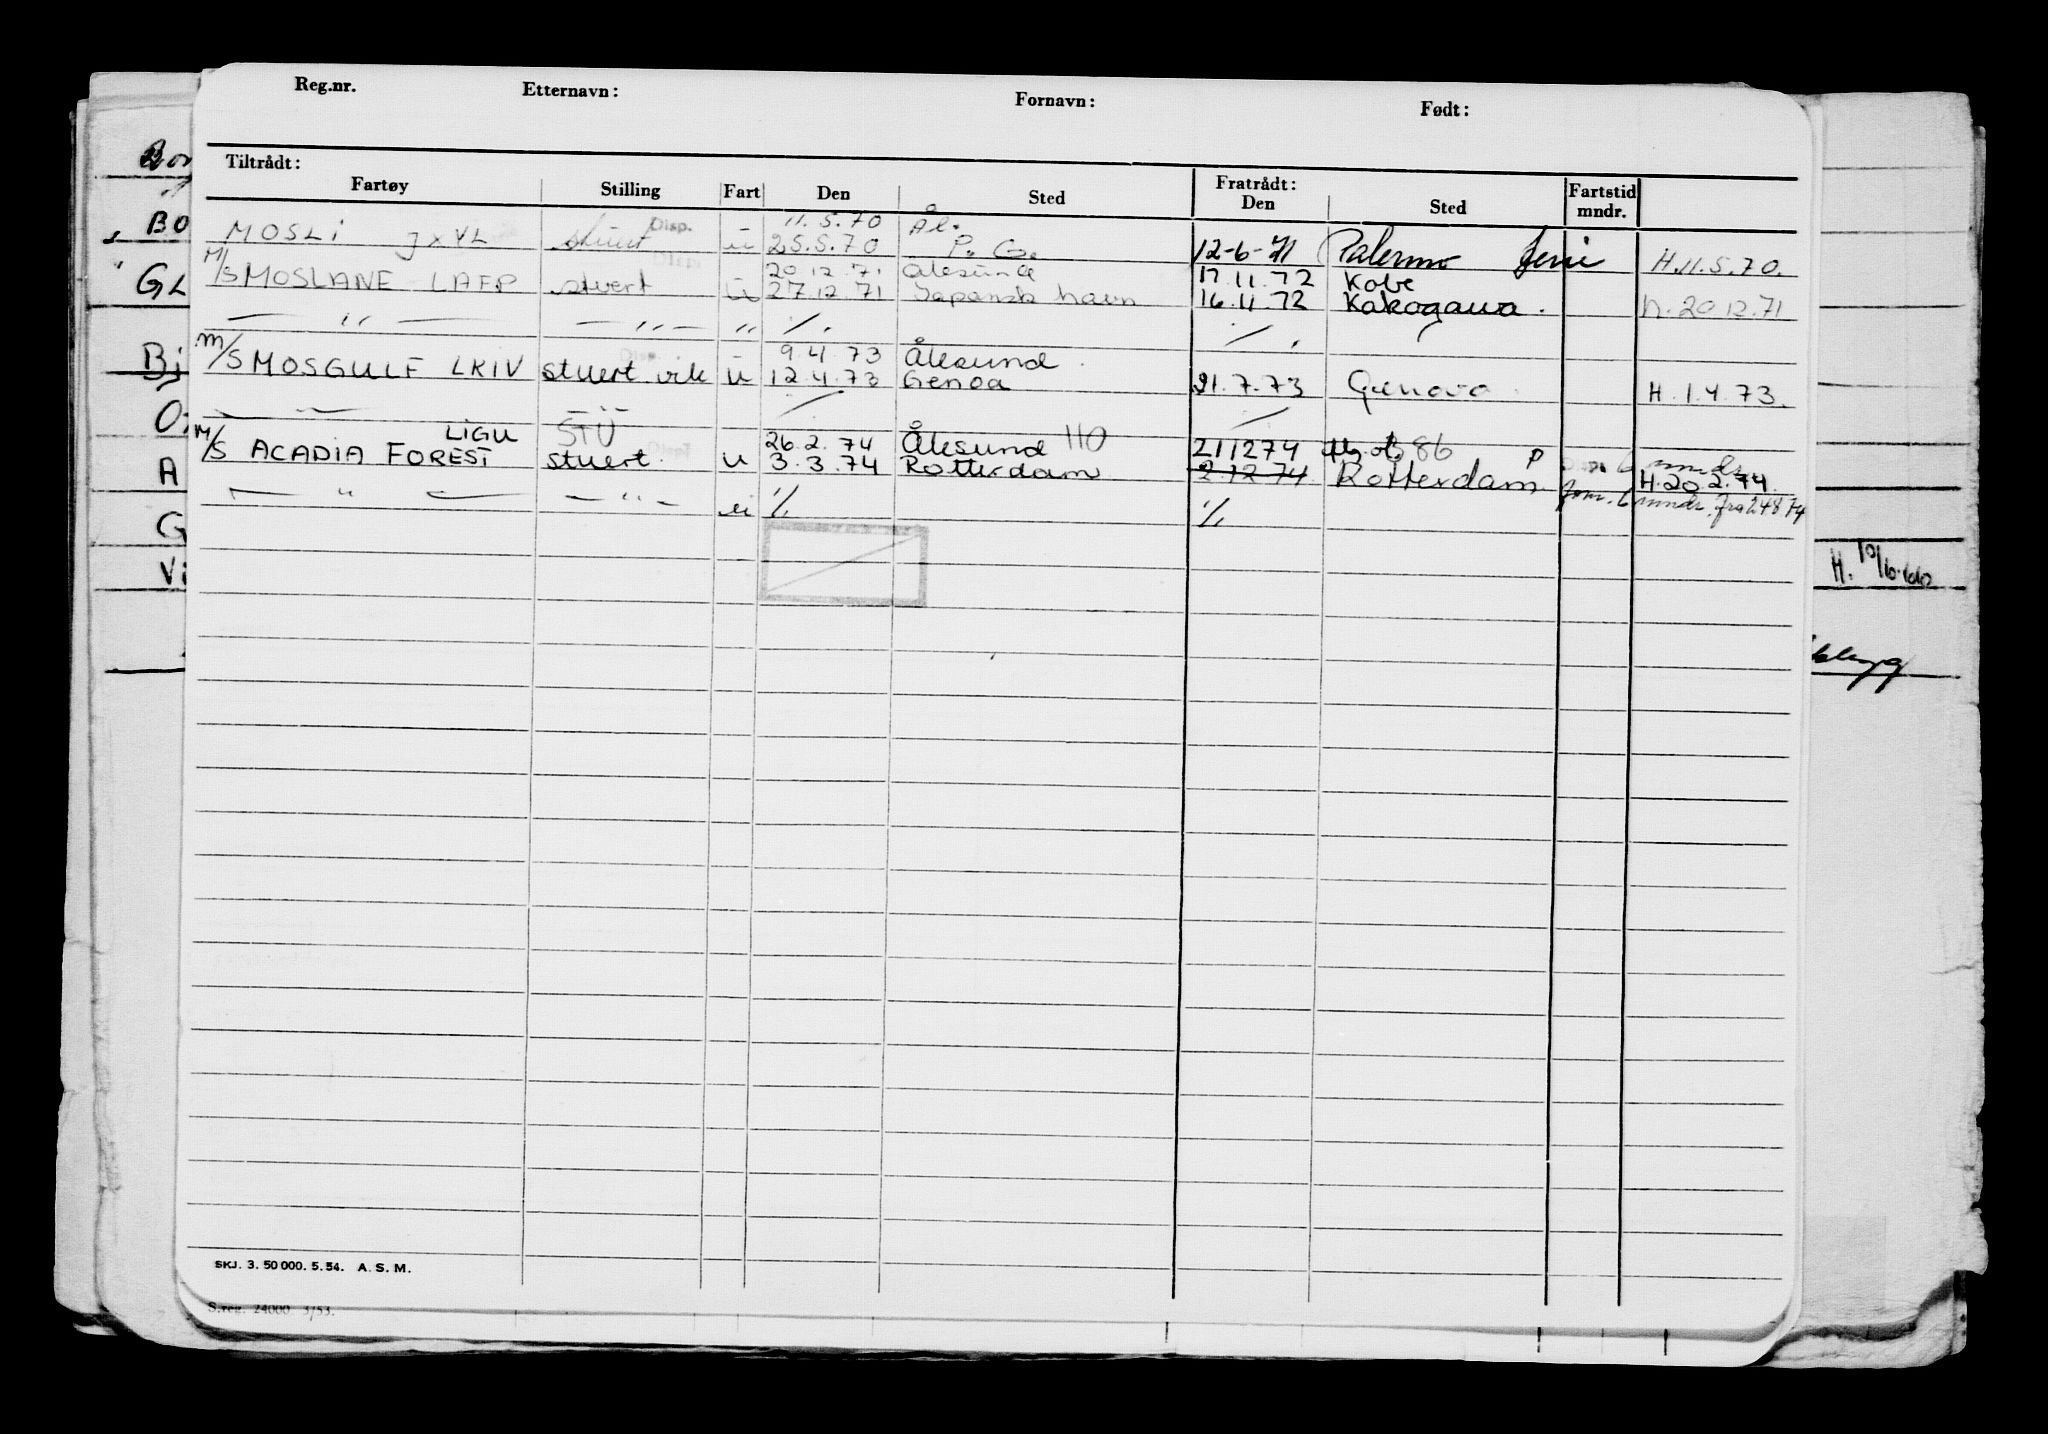 Reg.nr. Etternavn: Fornavn: Født:
Tiltrådt: Fratrådt:
Fartøy Stilling Fart Den Sted Den Sted Fartstid mndr.
Disp. 11.5.70 Ål.
MOSLI JXVL stuert u 25.5.70 P. G. 12-6-71 Palermo ferie H.11.5.70.
20.12.71 Ålesund 17.11.72 Kobe
M/S MOSLANE LAFP stuert u 27.12.71 Japansk havn 16.11.72 Kakogawa. h.20.12.71
— ,, — — ,, — ,, ·/. ·/.
9.4.73 Ålesund
M/S MOSGULF LKIV stuert vik u 12.4.73 Genoa 31.7.73 Genova H.1.4.73.
LIGU STU 26.2.74 Ålesund 110 211274 86 P 6 mndr.
M/S ACADIA FOREST stuert. u 3.3.74 Rotterdam 2 12 74 Rotterdam H.20.2.74
— " — — " — u ·/. ·/. 6 mndr. fra 24874
BO
GL
Bj
A
G
Vi
H. 10/6.60
SKJ. 3. 50 000. 5. 54. A. S. M.
S.reg. 24000 3/53.